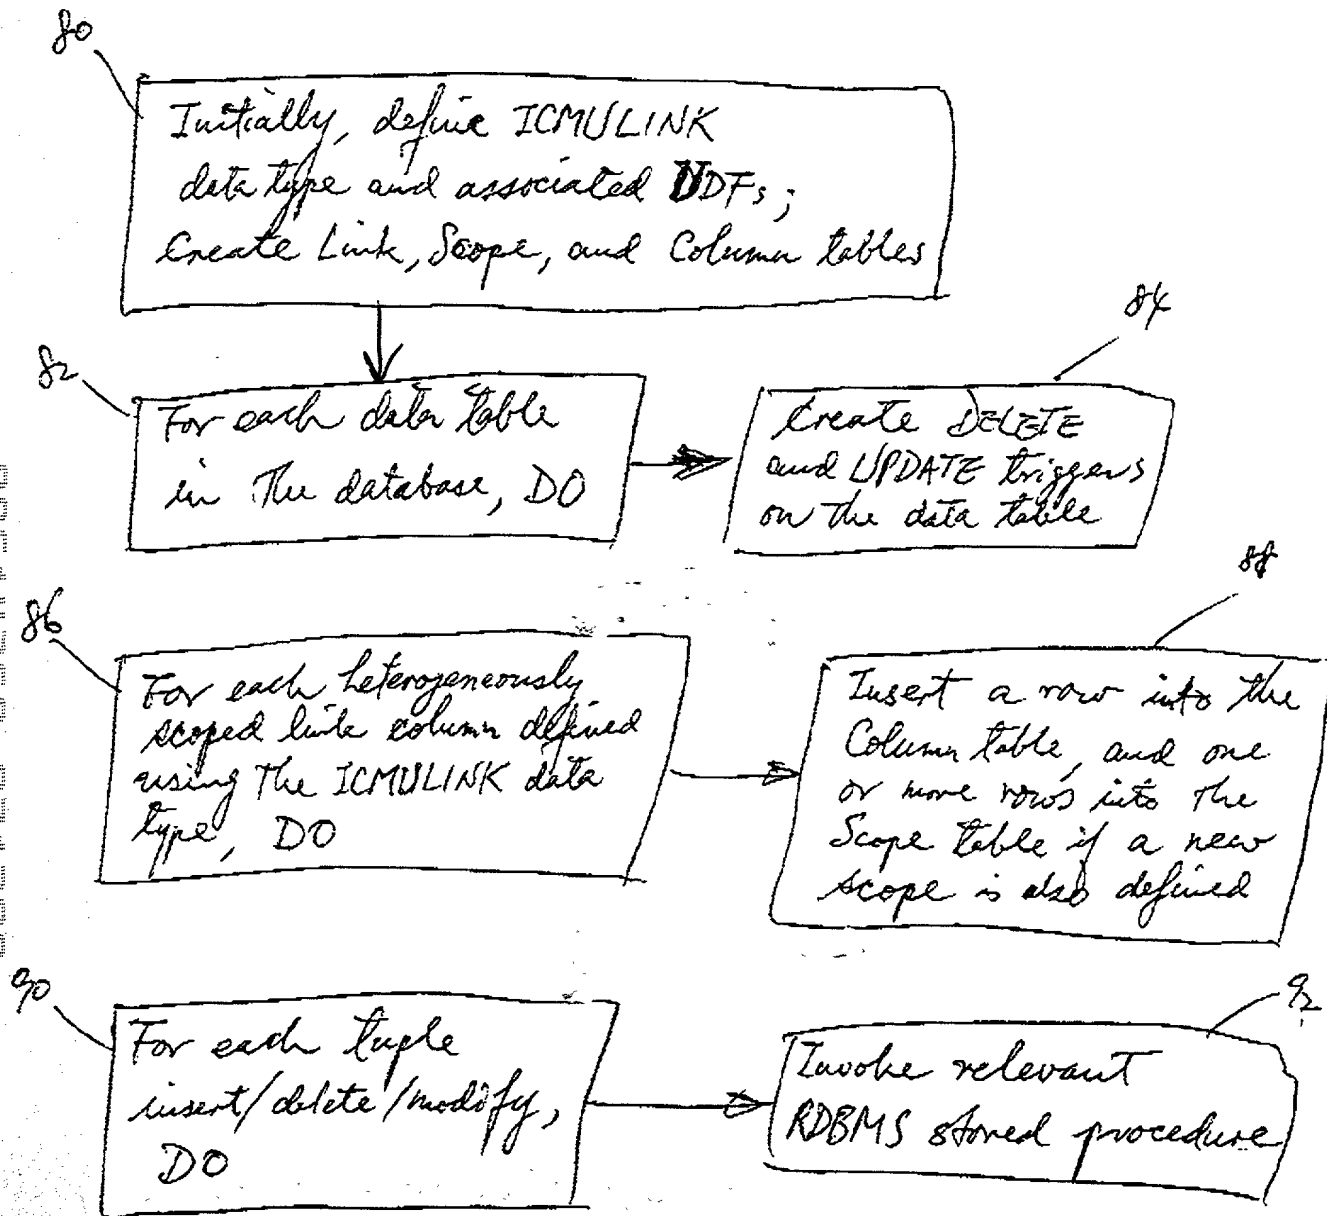 80
Initially, define ICMULINK
data type and associated UDFs;
Create Link, Scope, and Column tables
82
For each data table
in the database, DO
84
Create DELETE
and UPDATE triggers
on the data table
86
For each heterogeneously
scoped link column defined
using the ICMULINK data
type, DO
88
Insert a row into the
Column table, and one
or more rows into the
Scope table if a new
scope is also defined
90
For each tuple
insert/delete/modify,
DO
92
Invoke relevant
RDBMS stored procedure